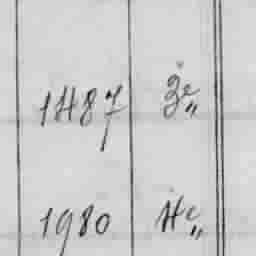 1487 3e„
1980 4e„